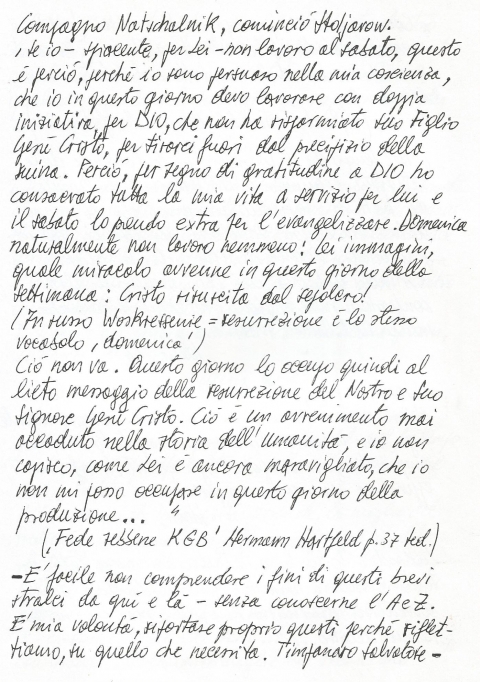 Compagno Natschalnik, cominciò Stoljarow.
, se io - spiacente, per Lei - non lavoro al sabato, questo
é perció, perché io sono persuaso nella mia coscienza,
che io in questo giorno devo lavorare con doppia
iniziativa, per DIO, che non ha risparmiato suo Figlio
Gesú Cristó, per tirarci fuori dal precipizio della
ruina. Perció, per segno di gratitudine a DIO ho
consacrato tutta la mia vita a servizio per lui e
il sabato lo prendo extra per l'evangelizzare. Domenica
naturalmente non lavoro nemmeno! Lei immagini,
quale miracolo avvenne in questo giorno della
settimana: Cristo risuscita dal sepolcro!
(In russo Woskressenie = resurrezione è lo stesso
vocabolo, domenica')
Ció non va. Questo giorno lo occupo quindi al
lieto messaggio della resurrezione del Nostro e Suo
Signore Gesú Cristo. Ció é un avvenimento mai
accaduto nella storia dell'umanitá, e io non
capisco, come Lei é ancora maravigliato, che io
non mi posso occupare in questo giorno della
produzione... "
(,Fede sebbene KGB' Hermann Hartfeld p.37 ted.)
- E' facile non comprendere i fini di questi brevi
stralci da quí e lá - senza conoscerne l'A e Z.
E' mia volontá, riportare proprio questi perché riflet-
tiamo, su quello che necessita. Timpanaro Salvatore -